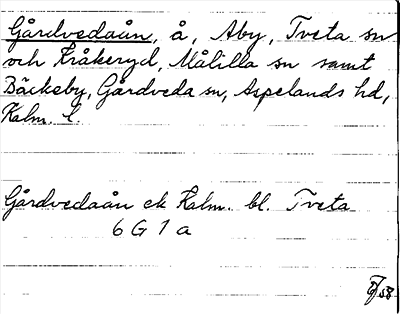 Gårdvedaån, å, Åby, Tveta sn
och Kråkeryd, Målilla sn samt
Bäckeby, Gårdveda sn, Aspelands hd,
Kalm. l.
Gårdvedaån ek Kalm. bl. Tveta
6 G 1 a
58